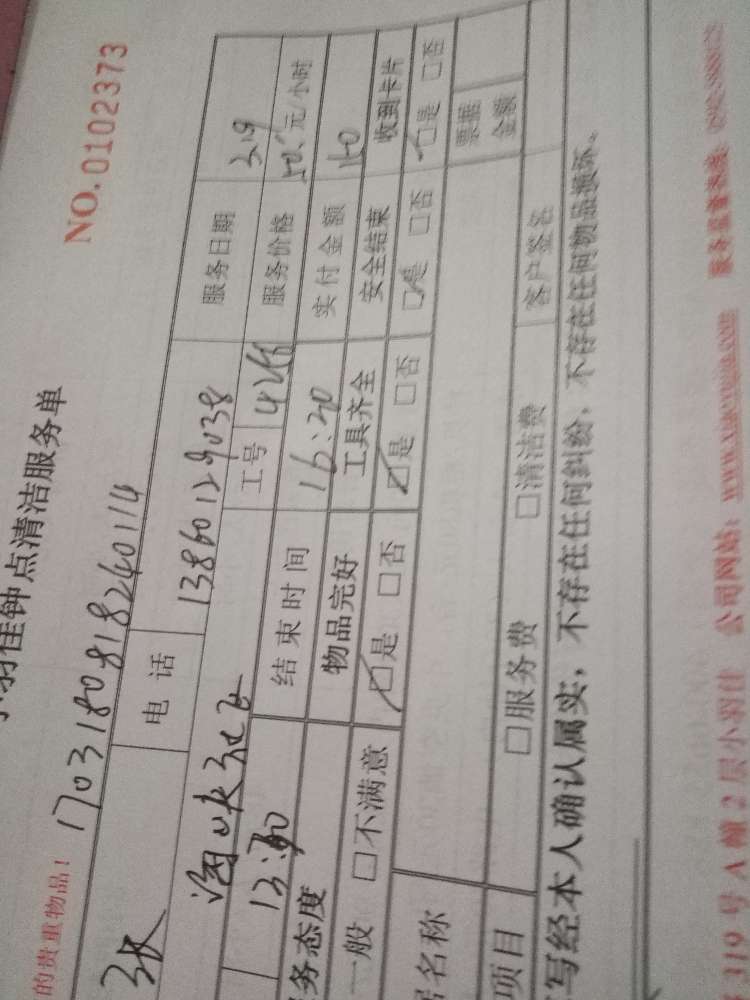 NO.0102373
羽佳钟点清洁服务单
的贵重物品！ 17031808182640114
张 电话 13860129038 服务日期 3.19
海峡社区 工号 4266 服务价格 50. 元/小时
13:30 结束时间 16:40 实付金额 160
务态度 物品完好 工具齐全 安全结束 收到卡片
一般 □不满意 ☑是 □否 ☑是 □否 ☑是 □否 ☑是 □否
名称 票据金额
项目 □服务费 □清洁费 客户签名
写经本人确认属实，不存在任何纠纷，不存在任何物品损坏。
319 号 A 幢 2 层小羽佳 公司网站：